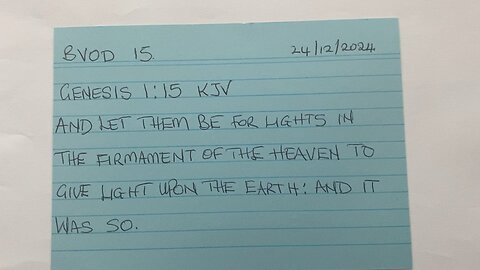 BVOD 15. 24/12/2024
GENESIS 1:15 KJV
AND LET THEM BE FOR LIGHTS IN
THE FIRMAMENT OF THE HEAVEN TO
GIVE LIGHT UPON THE EARTH: AND IT
WAS SO.